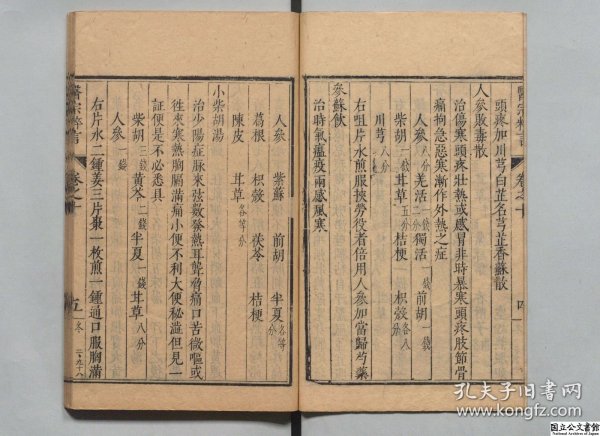 頭疼加川芎白芷名芎芷香蘇散
人參敗毒散
治傷寒頭疼壯熱或感冒非時暴寒頭疼肢節骨
痛拘急惡寒漸作外熱之症
人參八分 羌活二分 獨活一分 前胡一錢
柴胡一錢 甘草五分 桔梗 枳殼各八分
川芎八分
右咀片水煎服挾勞役者倍用人參加當歸芍藥
參蘇飲
治時氣瘟疫兩感風寒
四
醫宗粹言
卷之十
人參 紫蘇 前胡 半夏各等分
葛根 枳殼 茯苓 桔梗
陳皮 甘草各等分
小柴胡湯
治少陽症脈來弦數發熱耳聾脅痛口苦微嘔或
徃來寒熱胸膈滿痛小便不利大便秘澁但見一
証便是不必悉具
柴胡三錢 黃芩二錢 半夏一錢 甘草八分
人參一錢
右片水二鍾姜三片棗一枚煎一鍾通口服胸滿
醫宗粹言
卷之十
五
冬
孔夫子旧书网
www.kongfz.com
国立公文書館
National Archives of Japan